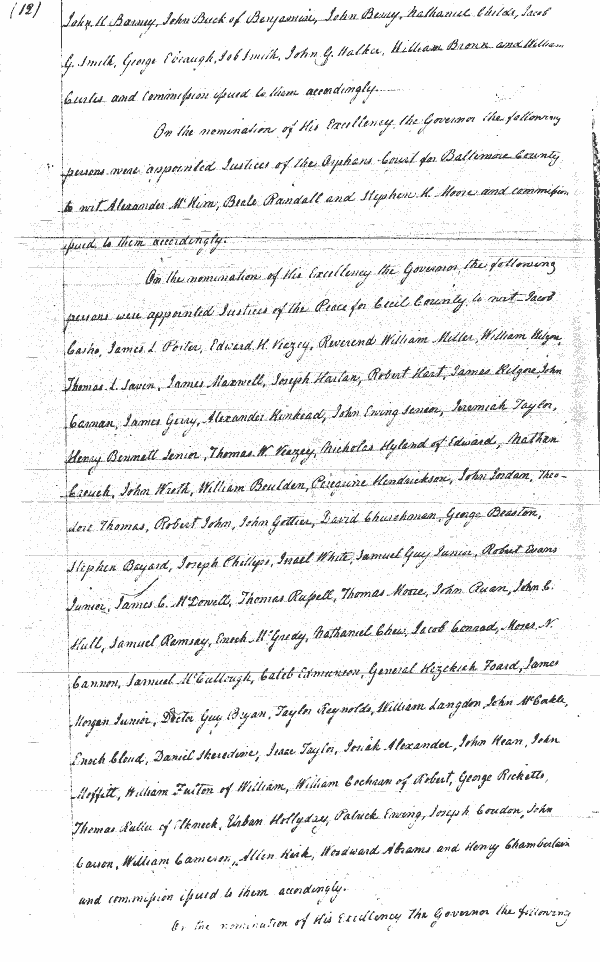 (12)
John W Barney, John Buck of Benjamin, John Berry, Nathaniel Childs, Jacob
G. Smith, George Ebaugh, Job Smith, John G. Walker, William Brown and William
Curles and Commission issued to them accordingly.
On the nomination of His Excellency the Governor the following
persons were appointed Justices of the Orphans Court for Baltimore County
to wit Alexander McKim, Beale Randall and Stephen H. Moore and commission
issued to them accordingly.
On the nomination of His Excellency the Governor, the following
persons were appointed Justices of the Peace for Cecil County to wit Jacob
Casho, James L Porter, Edward H. Veazey, Reverend William Miller, William Kilgore,
Thomas L. Savin, James Maxwell, Joseph Harlan, Robert Hart, James Kilgore, John
Carnan, James Gerry, Alexander Kinkead, John Ewing Senior, Jeremiah Taylor,
Henry Bennett Senior, Thomas W. Veazey, Nicholas Hyland of Edward, Nathan
Crouch, John Wroth, William Boulden, Peregrine Hendrickson, John Jordan, Theo-
dore Thomas, Robert John, John Gottier, David Churchman, George Beaston,
Stephen Bayard, Joseph Phillips, Israel White, Samuel Guy Junior, Robert Evans
Junior, James C. McDowell, Thomas Russell, Thomas Moore, John Ruan, John C.
Hull, Samuel Ramsay, Enoch McGredy, Nathaniel Chew, Jacob Conrad, Moses N.
Cannon, Samuel McCullough, Caleb Edmunson, General Hezekiah Foard, James
Morgan Junior, Doctor Guy Bryan, Taylor Reynolds, William Langdon, John McCorkle,
Enoch Cloud, Daniel Sheredine, Isaac Taylor, Josiah Alexander, John Kean, John
Moffitt, William Fulton of William, William Cochran of Robert, George Ricketts,
Thomas of Elkneck, Urban Hollyday, Patrick Ewing, Joseph Coudon, John
Carson, William Cameron, Allen Kirk, Woodward Abrams and Henry Chamberlain
and commission issued to them accordingly.
On the nomination of His Excellency The Governor the following